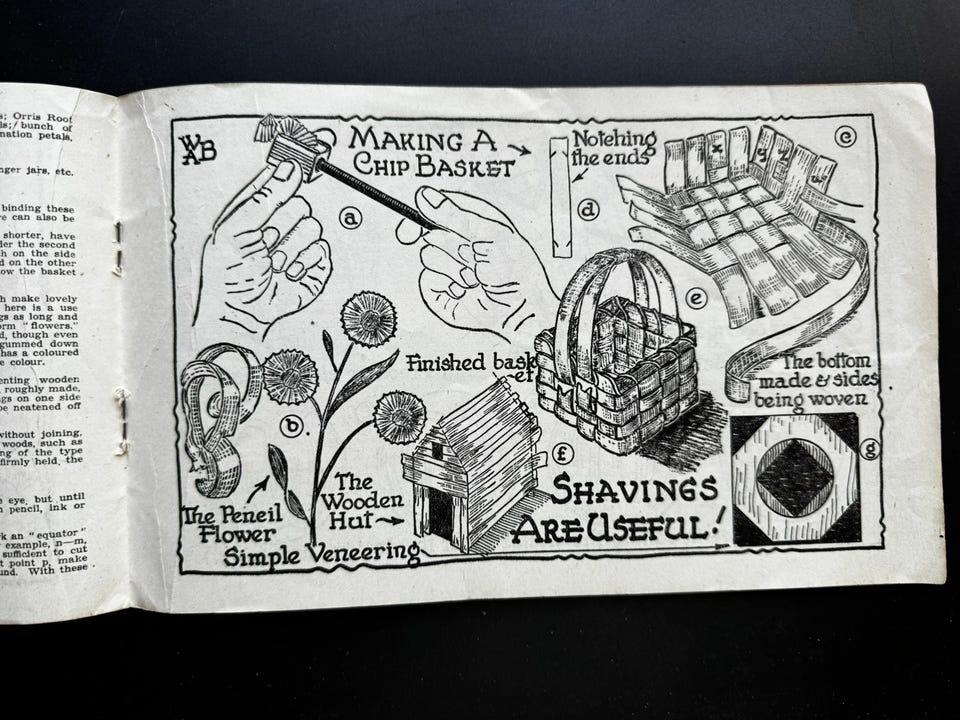 s; Orris Root
ls; / bunch of
nation petals,
nger jars, etc.
binding these
re can also be
shorter, have
der the second
h on the side
d on the other
ow the basket
h make lovely
here is a use
gs as long and
orm "flowers."
d, though even
gummed down
has a coloured
e colour.
enting wooden
roughly made,
ngs on one side
be neatened off
without joining,
woods, such as
ng of the type
firmly held, the
e eye, but until
n pencil, ink or
k an "equator"
example, n—m,
sufficient to cut
t point p, make
und. With these
WAB
MAKING A
CHIP BASKET
a
Notching
the ends
d
c
x
y
z
e
The bottom
made & sides
being woven
Finished bask
et
b.
The Pencil
Flower
The
Wooden
Hut
Simple Veneering
f
g
SHAVINGS
ARE USEFUL!